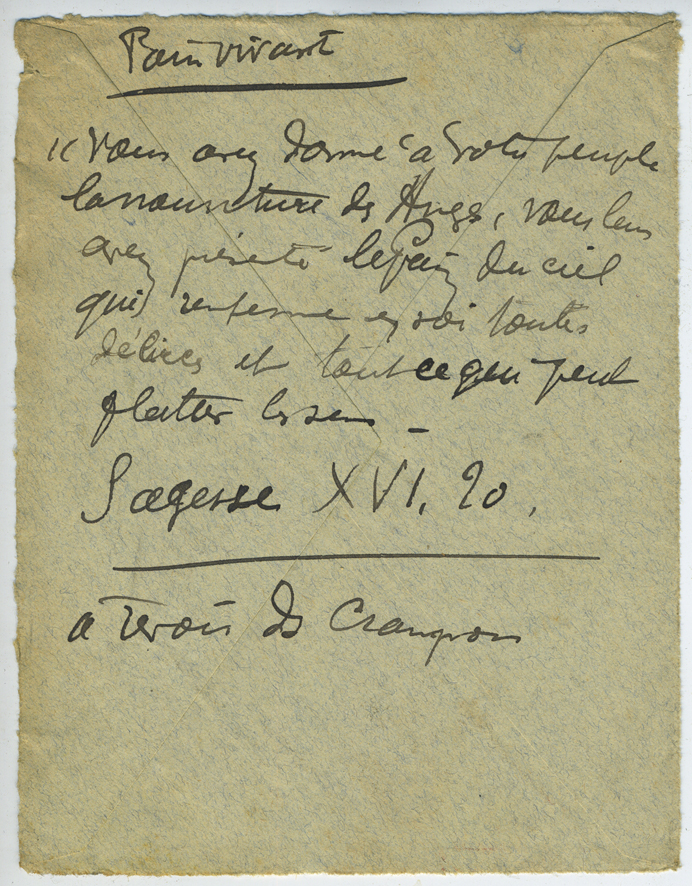 Pain vivant
« Vous avez donné à votre peuple
la nourriture des Anges, vous leur
avez présenté le Pain du ciel
qui renferme en soi toutes
délices et tout ce qui peut
flatter les sens –
Sagesse XVI. 20.
a revoir ds Crampon